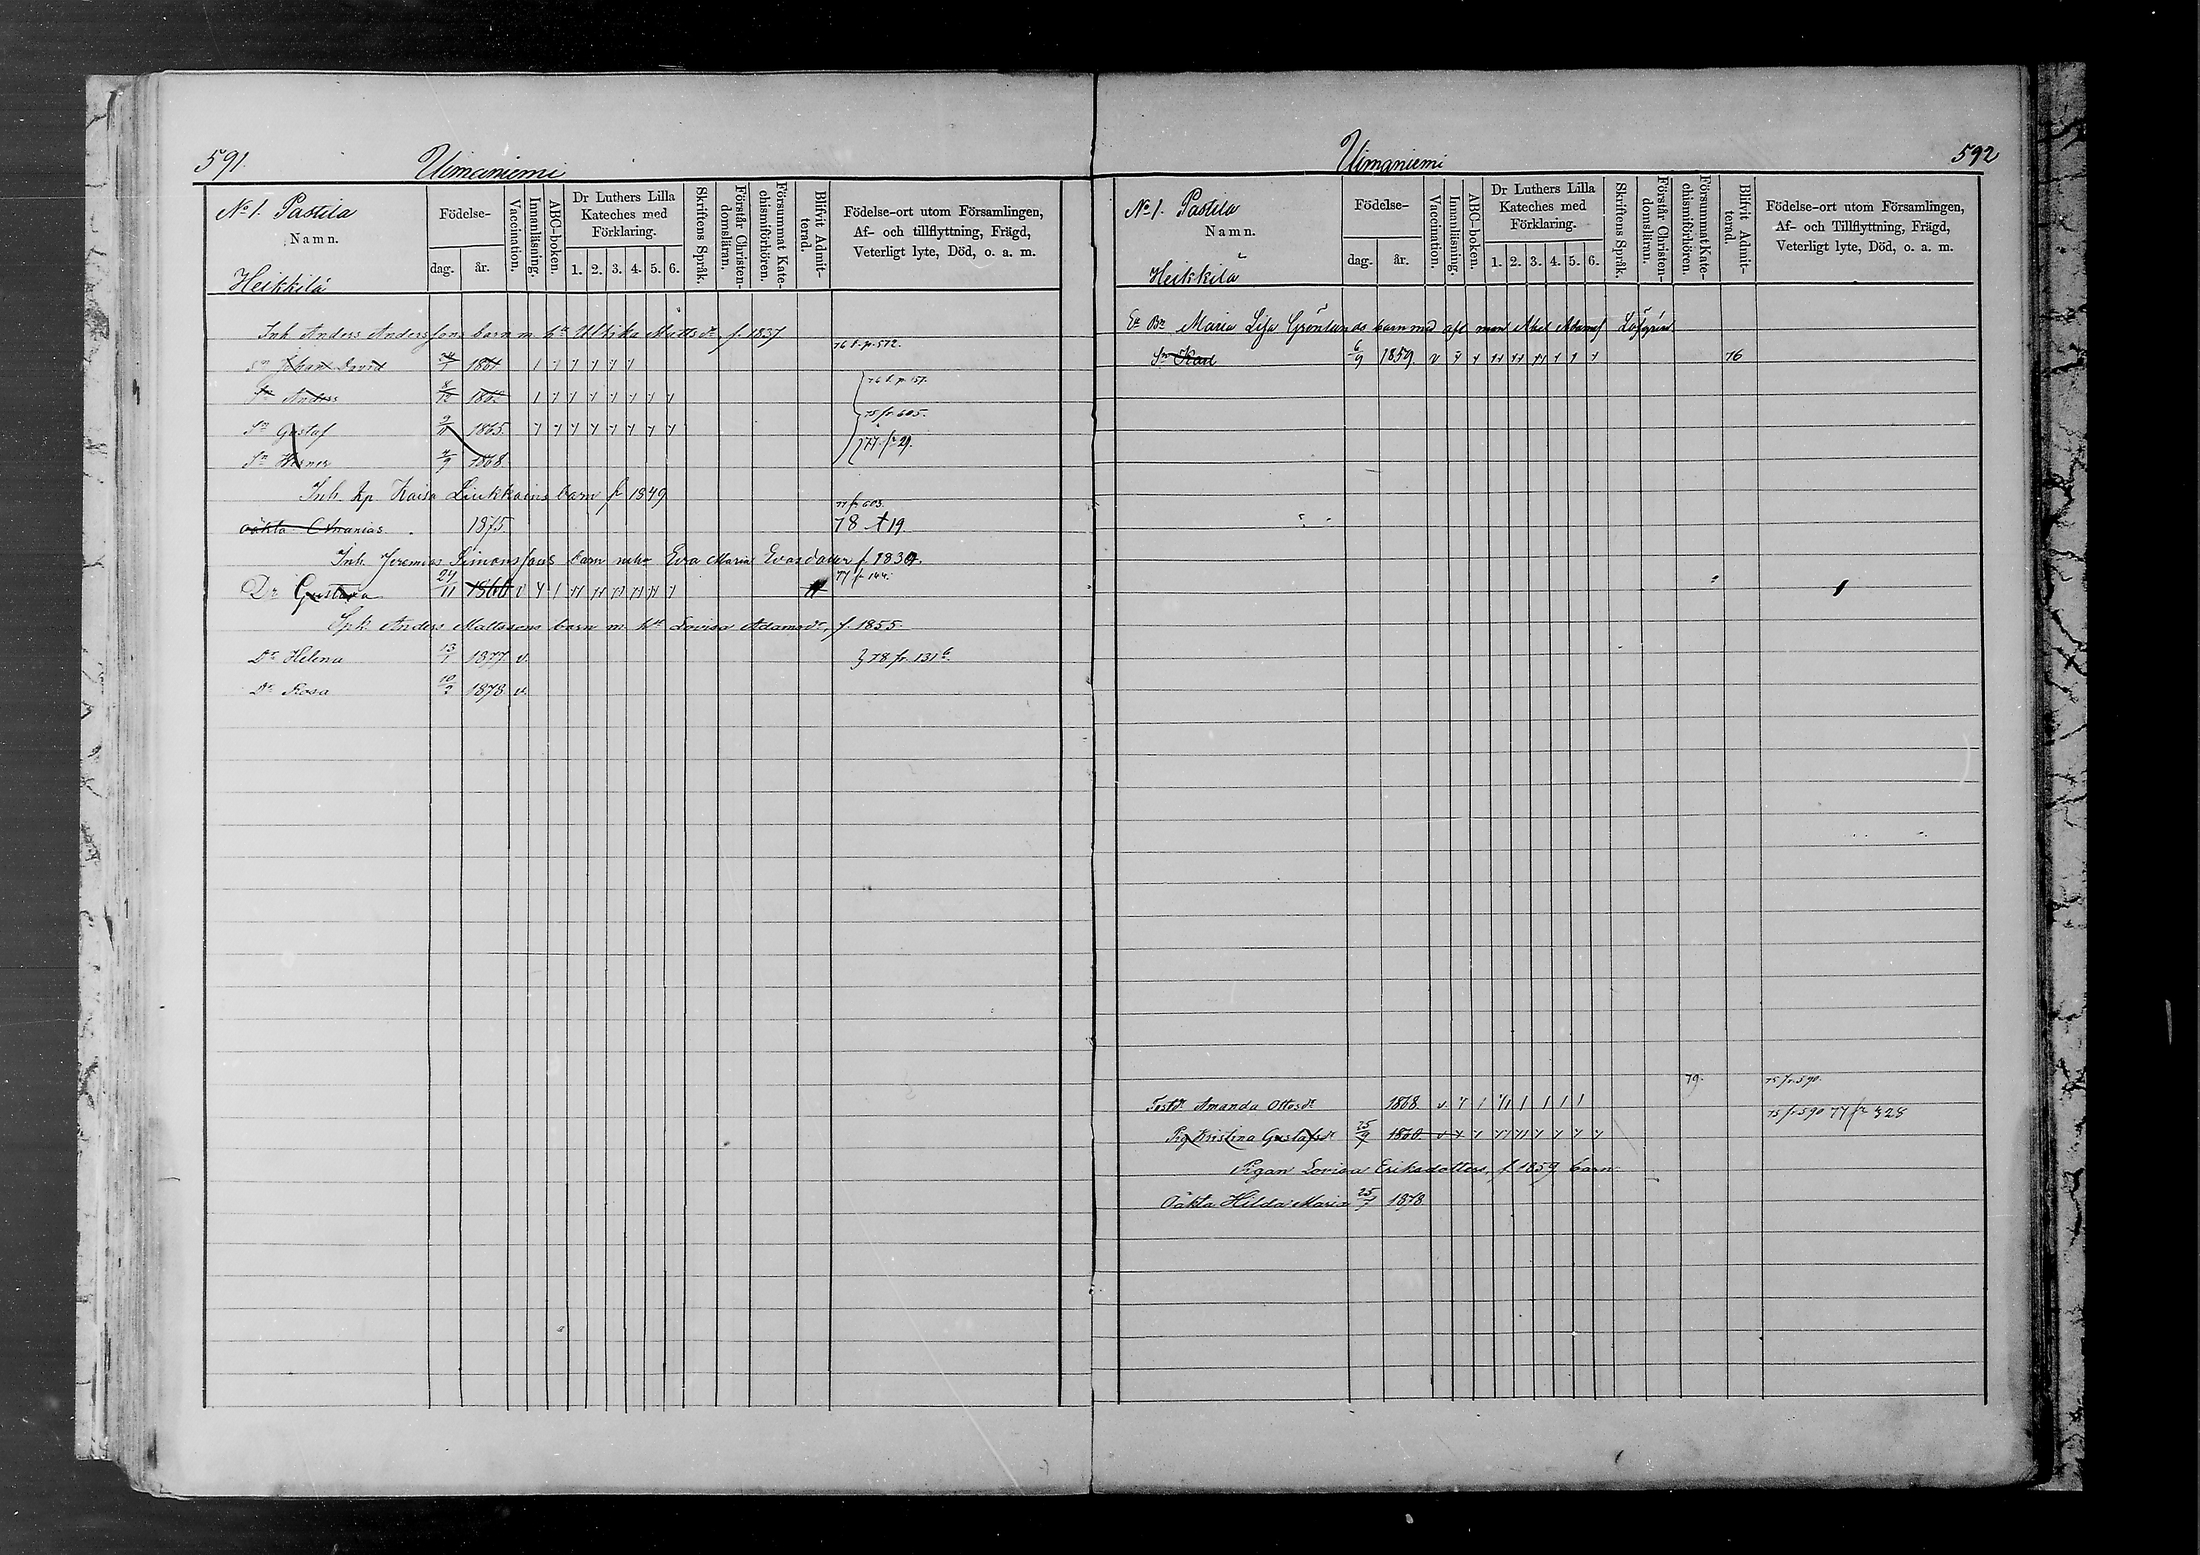 591.
Uimaniemi
No 1. Pastila
Namn.
Heikkilä
Födelse-
dag.
år.
Vaccination.
Innanläsning.
ABC-boken.
Dr Luthers Lilla
Kateches med
Förklaring.
1. 2. 3. 4. 5. 6.
Skriftens Språk.
Förstår Christen-
domsläran.
Försummat Kate-
chismiförhören.
Blifvit Admit-
terad.
Födelse-ort utom Församlingen,
Af- och tillflyttning, Frägd,
Veterligt lyte, Död, o. a. m.
Inh. Anders Anderssons barn m. hu Ulrika Mattsdr f. 1837
Sn Johan David 1861 76 f. p. 572.
Sn Anders 8/12 1862 76 f. p. 157.
Sn Gustaf 2/11 1865. 75 fr 605.
Sn Werner 4/9 1868. 77. fr 29.
Inh. Kaisa Liukkoins barn f 1849
oäkta Ananias. 1875. 77 fr 603. 78 †19
Inh. Jeremias Simonssons barn m hu Eva Maria Evasdotter f. 1830.
Dr Gustava 24/11 1860 v 77 fr 144.
Inh. Anders Mattssons barn m. hu Lovisa Adamsdr, f. 1855.
Dr Helena 13/1 1877. v. } 78 fr. 131b.
Dr Rosa 10/2 1878 v.
592
Uimaniemi
No 1. Pastila
Namn.
Heikkilä
Födelse-
dag.
år.
Vaccination.
Innanläsning.
ABC-boken.
Dr Luthers Lilla
Kateches med
Förklaring.
1. 2. 3. 4. 5. 6.
Skriftens Språk.
Förstår Christen-
domsläran.
Försummat Kate-
chismiförhören.
Blifvit Admit-
terad.
Födelse-ort utom Församlingen,
Af- och Tillflyttning, Frägd,
Veterligt lyte, Död, o. a. m.
Maria Lisa Grönlunds barn med afl man Abel Adamss Löfgrén
Sn Karl 6/9 1859. v 76
Amanda Ottosdr 1868. v 79. 75 fr. 590.
Pig Kristina Gustafsdr 25/9 1860 v 75 fr 590 77 fr 328
Pigan Lovisa Eriksdotters, f. 1859 barn.
Oäkta Hilda Maria 25/7 1878